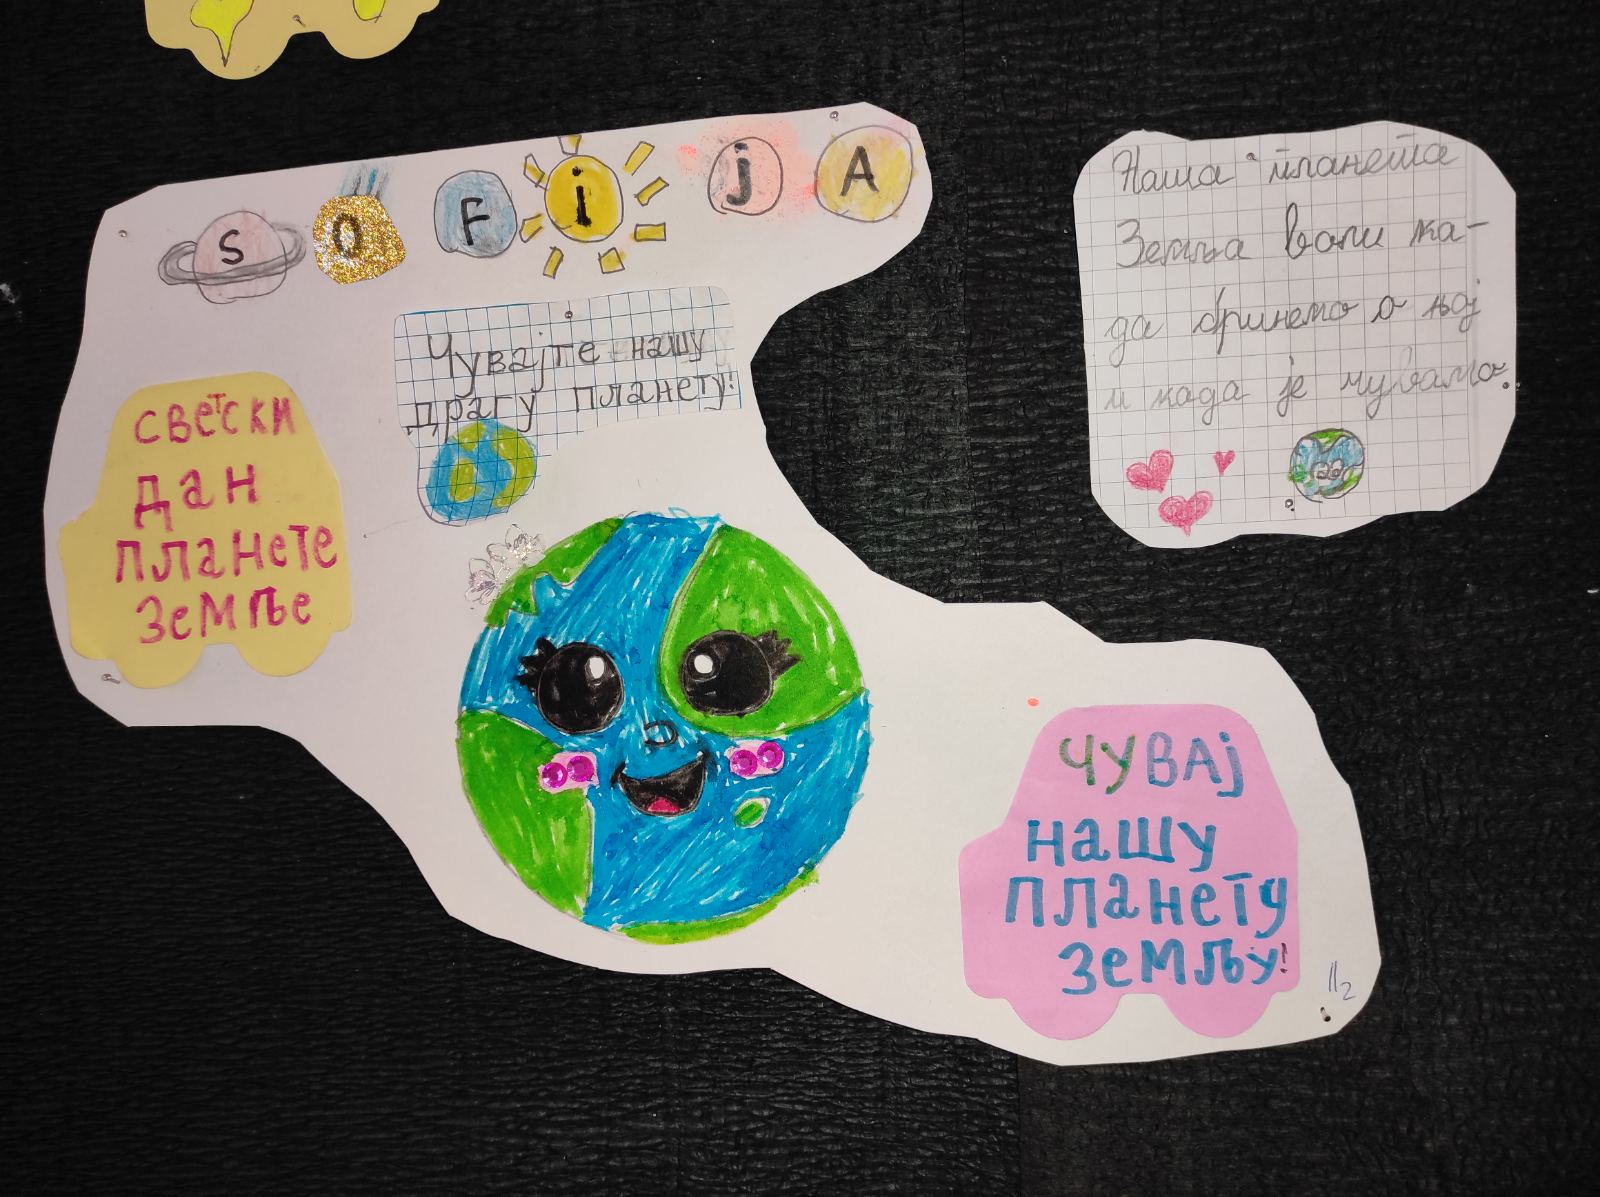 SOFijA
Чувајте нашу
драгу планету!
светски
дан
планете
земље
Наша планета
Земља воли ка-
да бринемо о њој
и када је чувамо.
чувај
нашу
планету
земљу!
II2